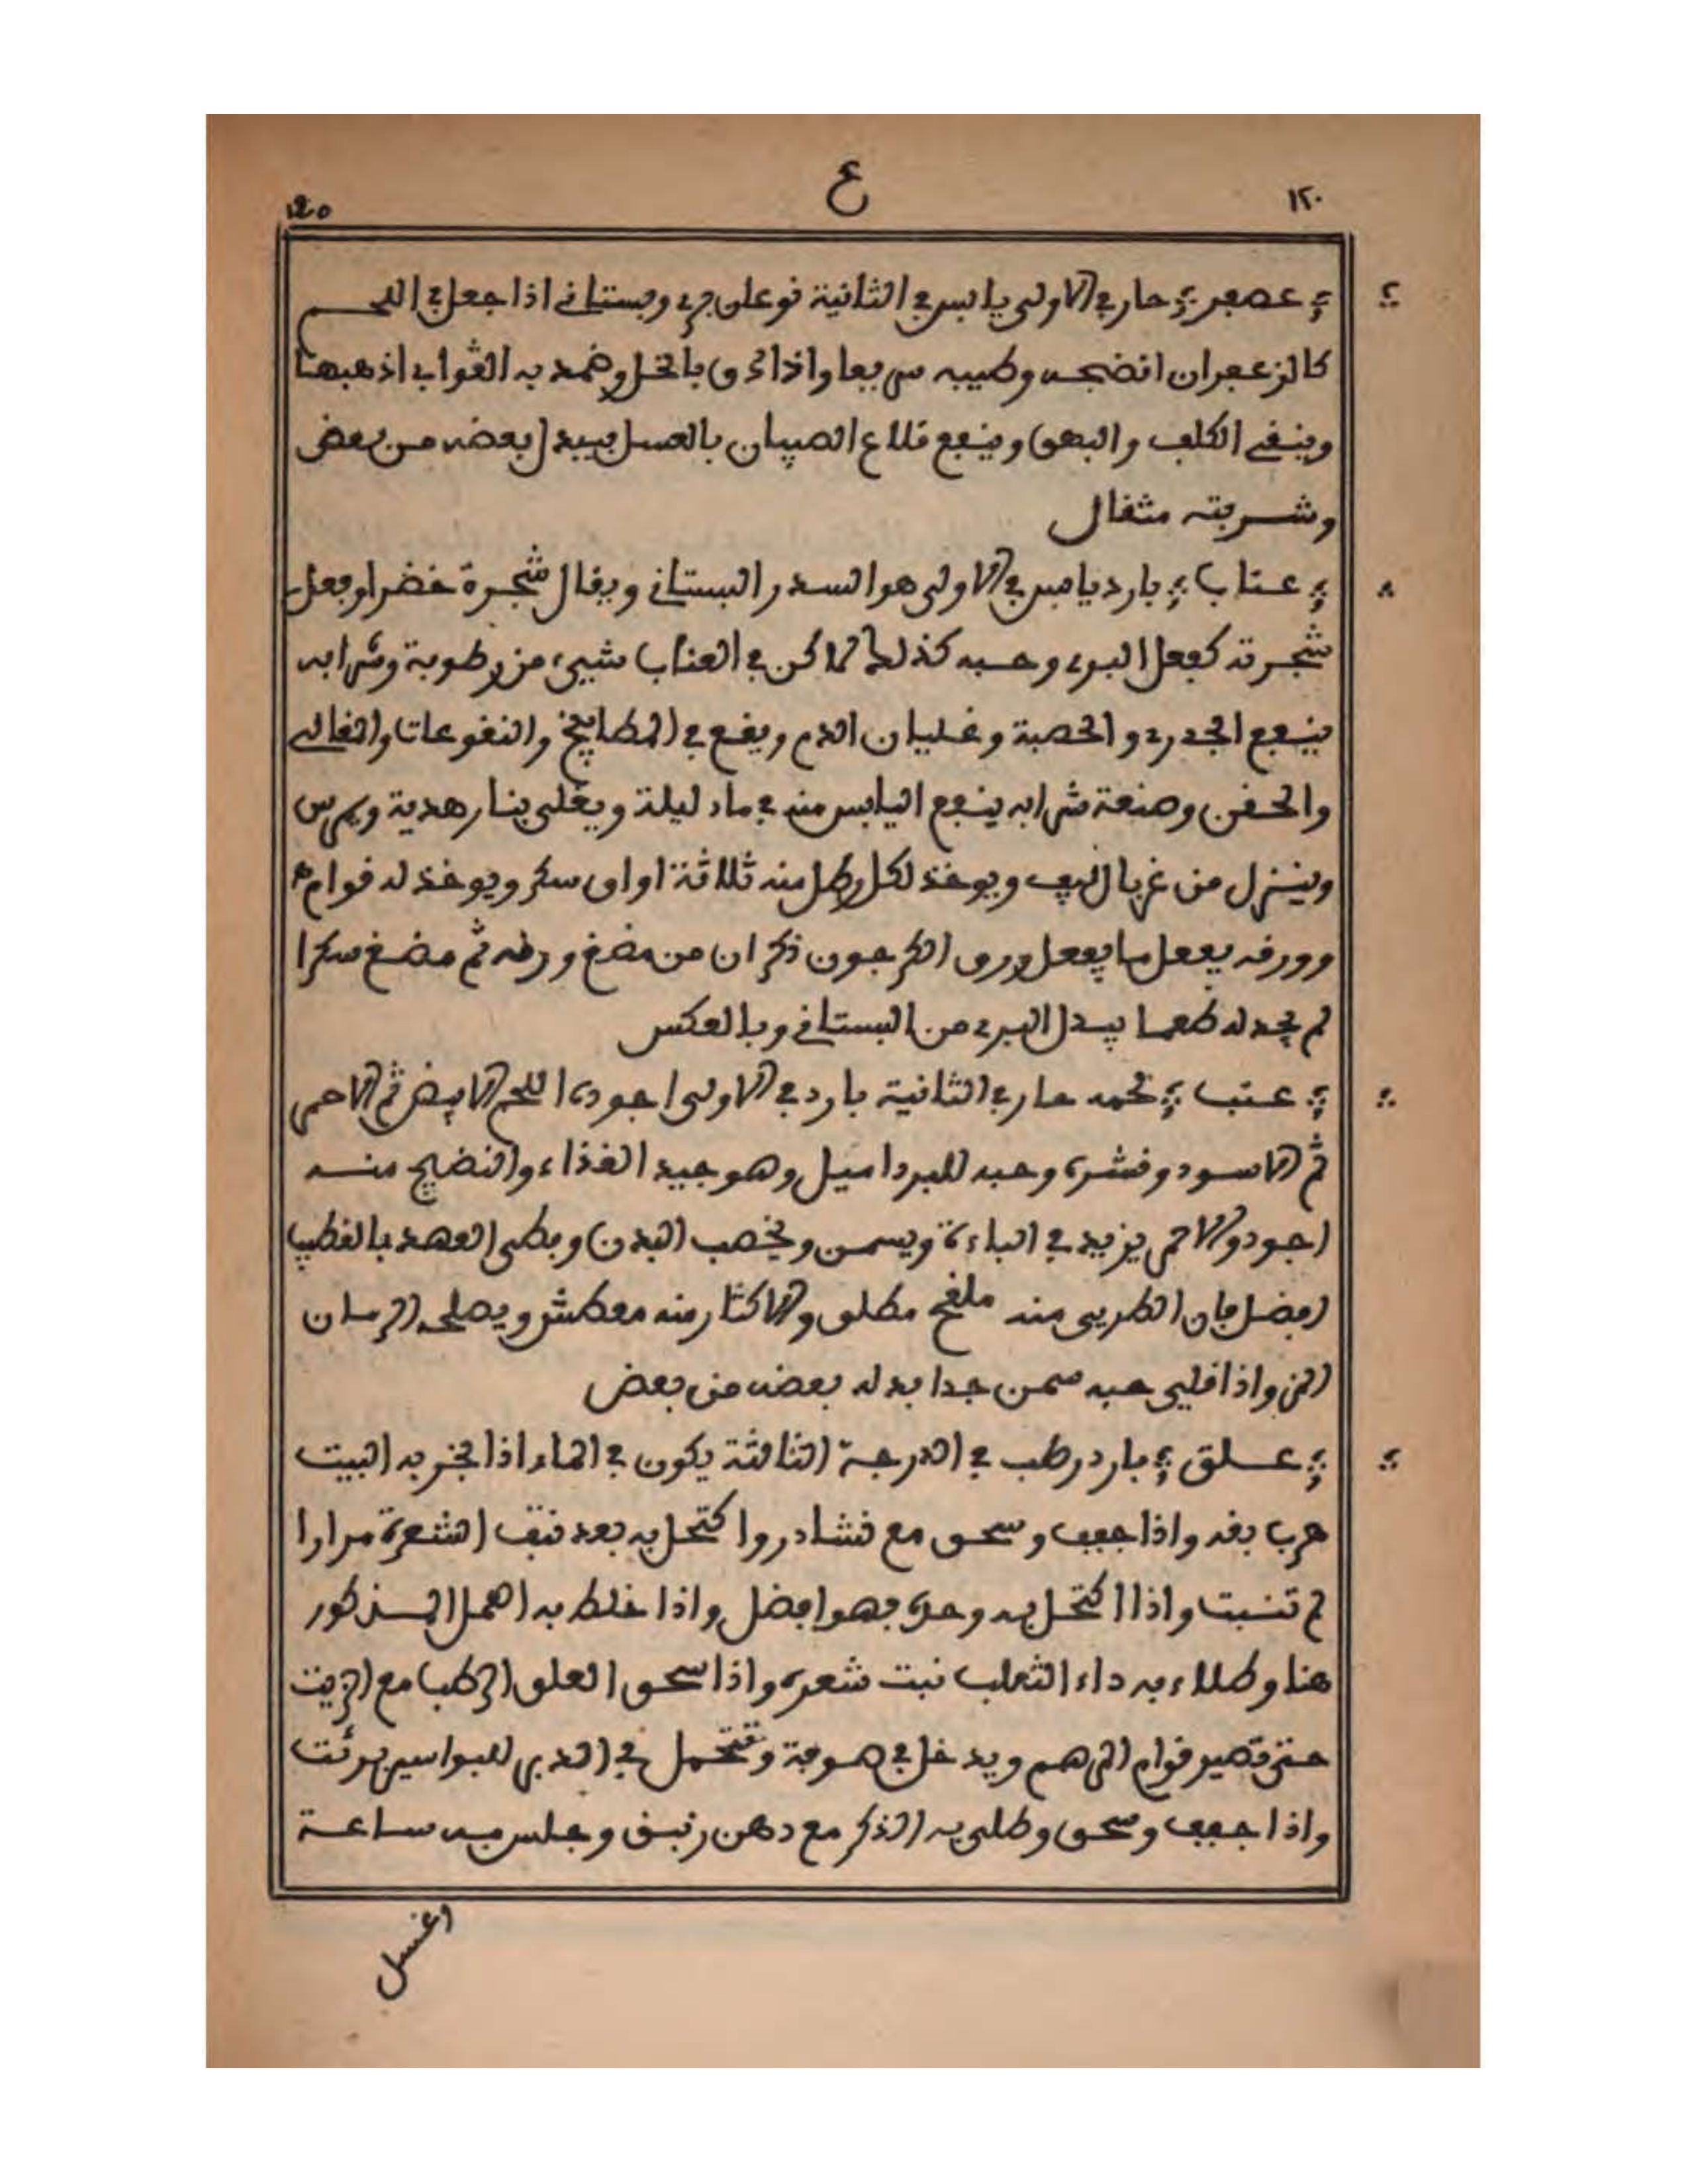 ١٢٠ ع
عصفر حار في الاولى يابس في الثانية نوعان بري وبستاني اذا جعل في اللحم
كالزعفران انضجه وطيبه سريعا واذا دق بالخل وضمد به القوابي اذهبها
وينقي الكلف والبهق وينفع قلاع الصبيان بالعسل يبدل بعضه من بعض
وشربته مثقال
عناب بارد يابس في الاولى هو السدر البستاني ويقال شجرة خضرا وفعل
شجرته كفعل البري وحبه كذلك لاكن في العناب شيئ من رطوبة وشرابه
ينفع الجدري والحصبة وغليان الدم ويقع في المطابيخ والنقوعات والغالي
والحقن وصنعة شرابه ينفع اليابس منه في ماء ليلة ويغلى بنار هدية ويمرس
وينزل من غربال ويوخذ لكل رطل منه ثلاثة اواق سكر ويوخذ له قوام
وورقه يفعل ما يفعل ورق الكرجون ذكر ان من مضغ ورقه ثم مضغ سكرا
لم يجد له طعما يبدل البري من البستاني وبالعكس
عنب لحمه حار في الثانية بارد في الاولى اجوده اللحم الابيض ثم الاحمر
ثم الاسود وقشره وحبه للبرد اميل وهو جيد الغذاء والنضيج منه
اجود والاحمر يزيد في الباءة ويسمن ويخصب البدن وبطى العهد بالقطب
افضل فان الطري منه ملقح مطلق والاكثار منه معطش ويصلحه الرمان
المز واذا قلي حبه سمن جدا بدله بعضه من بعض
علق بارد رطب في الدرجة الثالثة يكون في الماء اذا بخر به البيت
هرب بقه واذا جفف وسحق مع نشادر واكتحل به بعد نتف الشعرة مرارا
لم تنبت واذا اكتحل به وحده فهو افضل واذا خلط به المذكور
هنا وطلاء به داء الثعلب نبت شعره واذا سحق العلق الرطب مع الزيت
حتى تصير قوام المرهم ويدخل في صوفة وتتحمل في الدبر للبواسير برئت
واذا جفف وسحق وطلي به الذكر مع دهن زنبق وجلس به ساعة
اغسل